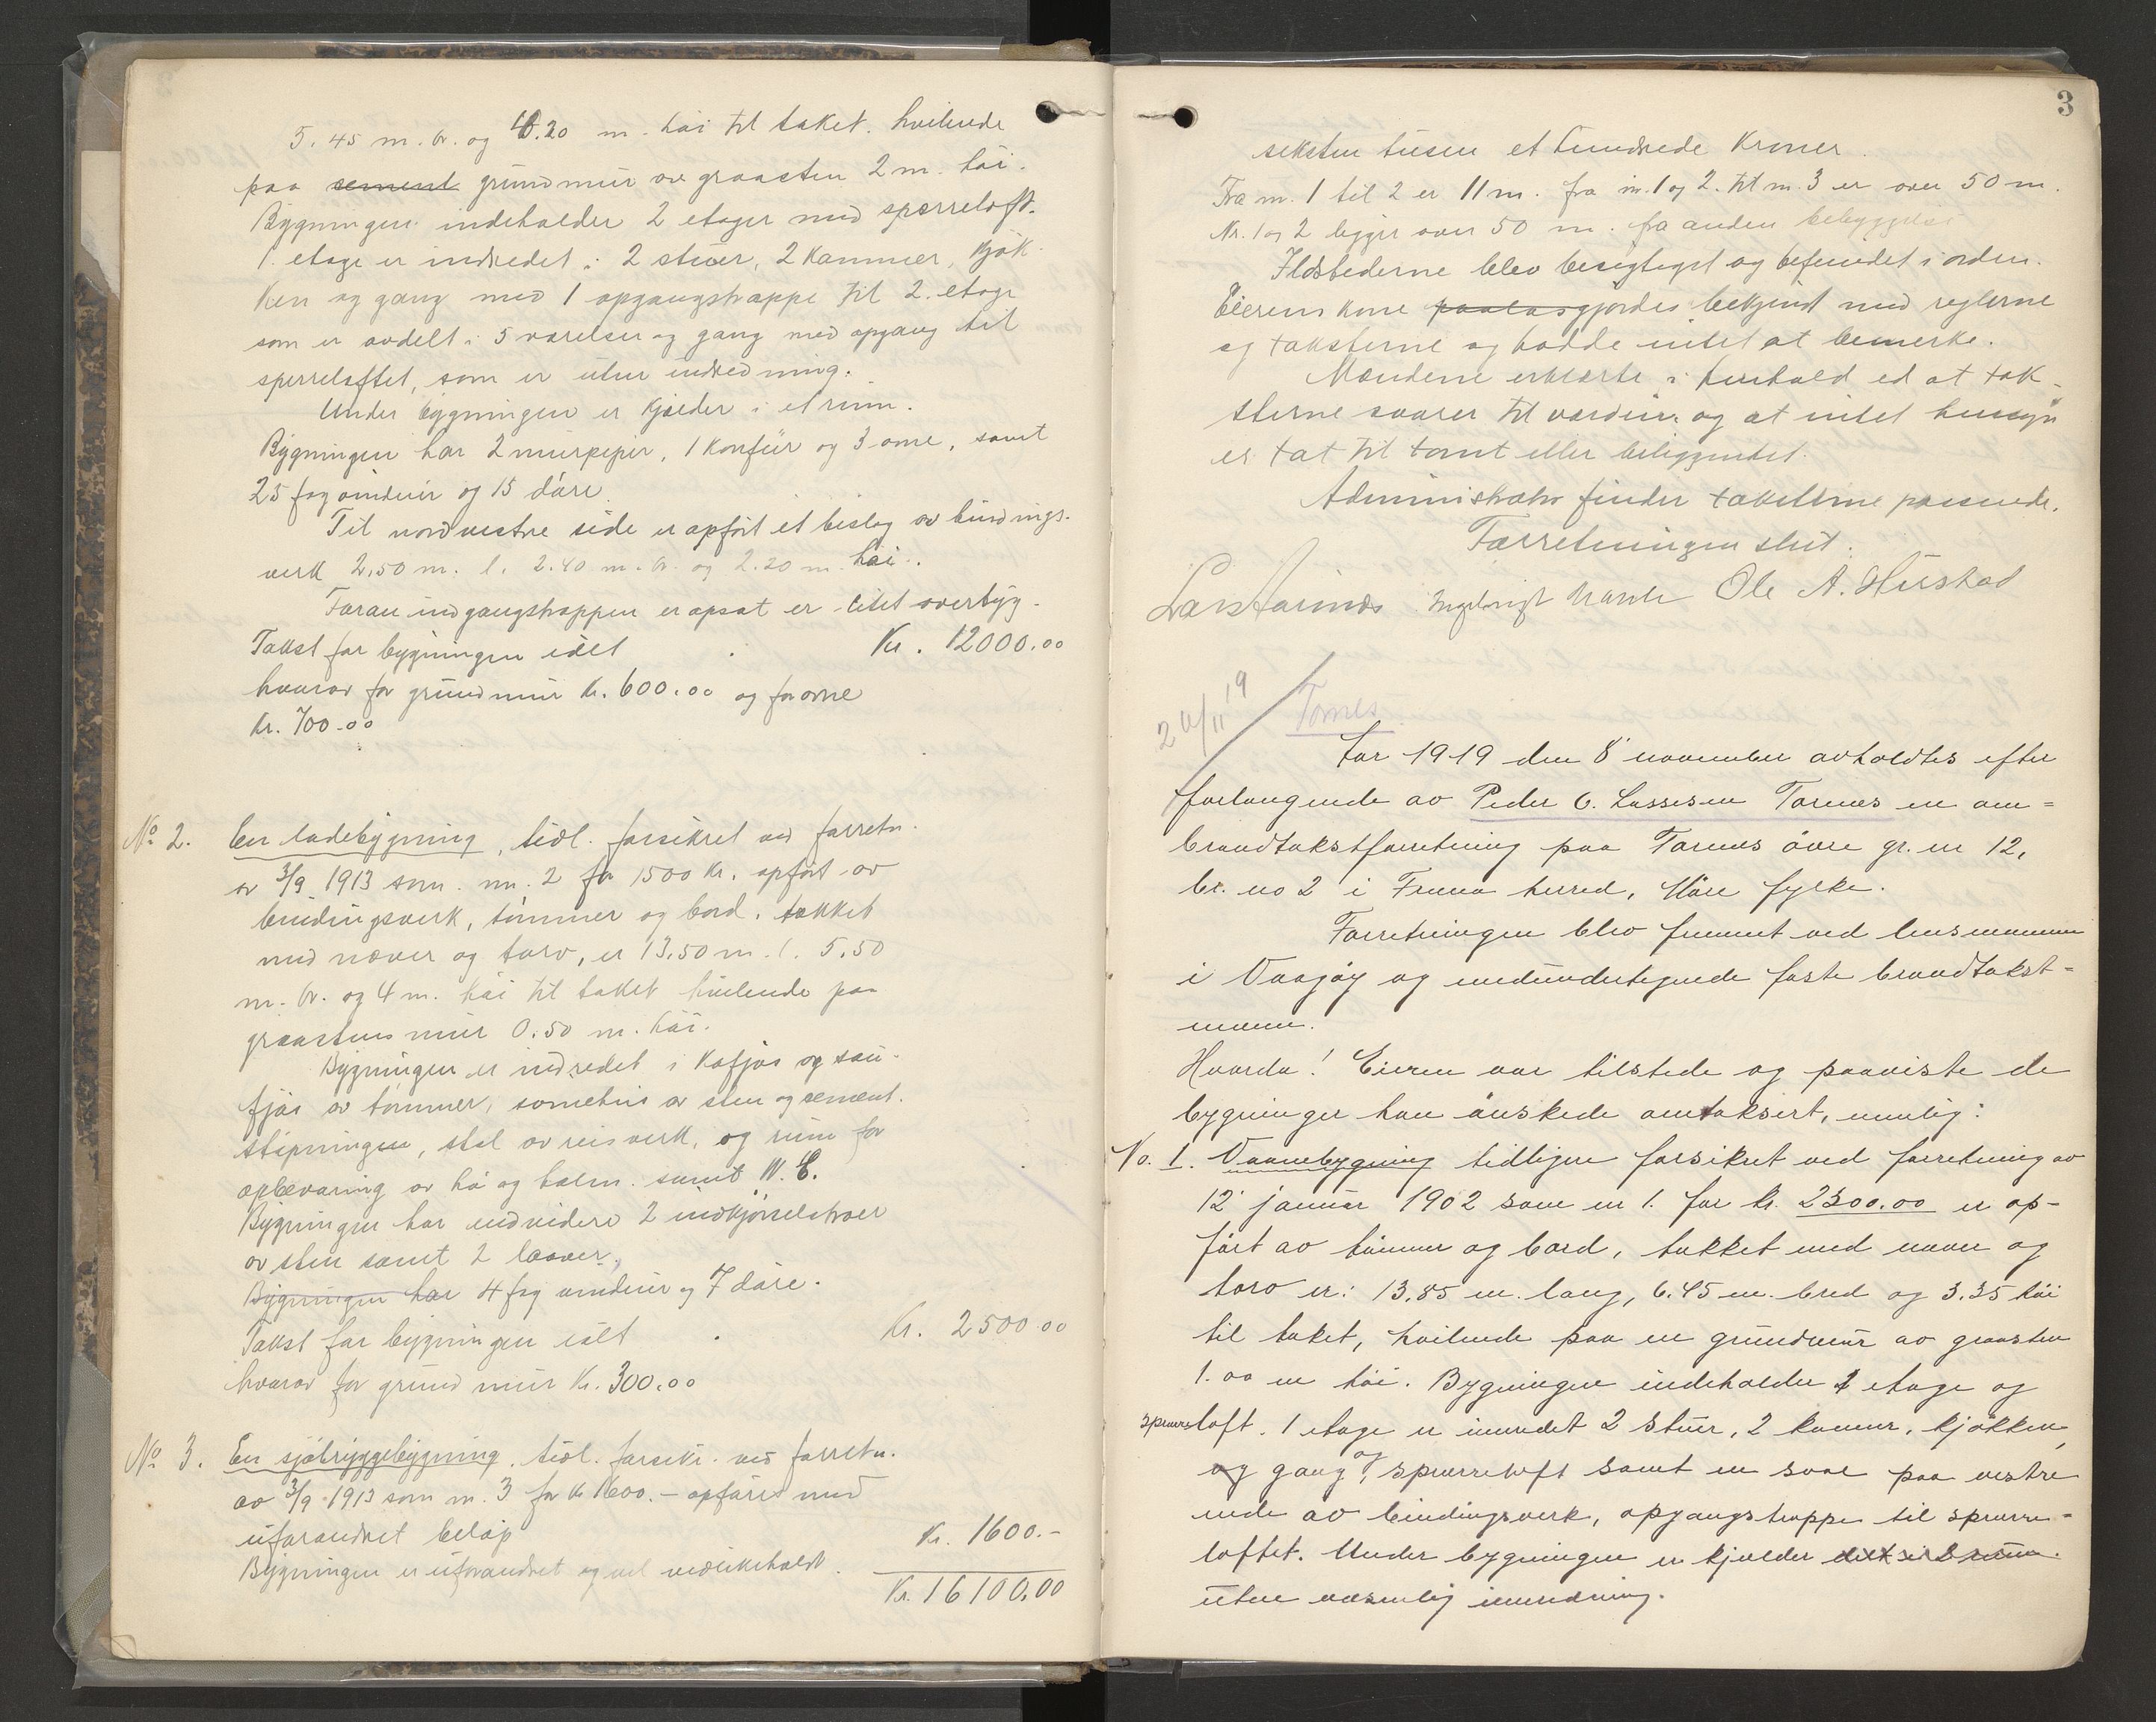 5.45 m. br. og 6.20 m. høi til taket. hvilende
paa sement grundmur av graasten 2 m. høi.
Bygningen indeholder 2 etager med sperreloft.
1. etage er indredet i 2 stuer, 2 kammer, kjøk-
ken og gang med 1 opgangstrappe til 2. etage
som er avdelt i 5 værelser og gang med opgang til
sperreloftet, som er uten indredning.
Under bygningen er kjelder i et rum.
Bygningen har 2 murpiper, 1 komfur og 3 ovne, samt
25 fag vinduer og 15 døre.
Til nordvestre side er opført et bislag av bindings-
verk 2.50 m. l. 2.40 m. br. og 2.20 m. høi.
Foran indgangstrappen er opsat er litet overbyg.
Takst for bygningen ialt Kr. 12000.00
hvorav for grundmur kr. 600.00 og for ovne
kr. 700.00
No 2. En ladebygning, tidl. forsikret ved forretn.
av 3/9 1913 som nr. 2 for 1500 kr. opført av
bindingsverk, tømmer og bord, tækket
med næver og torv, er 13.50 m. l. 5.50
m. br. og 4 m. høi til taket hvilende paa
graastens mur 0.50 m. høi.
Bygningen er indredet i kofjøs og sau-
fjøs av tømmer, somethus av sten og sement.
støpningen, stal av reisverk, og rum for
opbevaring av hø og halm. samt W. C.
Bygningen har endvidere 2 indkjørselsbroer
av sten samt 2 laaver,
Bygningen har 4 fag vinduer og 7 døre.
Takst for bygningen ialt Kr. 2500.00
hvorav for grund mur Kr. 300.00
No 3. En sjøbryggebygning, tidl. forsikr. ved forretn.
av 3/9 1913 som nr. 3 for kr 1600.- opføres med
uforandret beløp Kr. 1600.-
Bygningen er uforandret og vel vedlikeholdt.
Kr. 16100.00
3
seksten tusen et hundrede kroner.
Fra nr. 1 til 2 er 11 m. fra nr. 1 og 2. til nr. 3 er over 50 m.
Nr. 1 og 2 ligger over 50 m. fra anden bebyggelse
Ildstederne blev besigtiget og befundet i orden.
Eierens kone gjordes bekjendt med reglerne
og taksterne og hadde intet at bemerke.
Mændene erklærte i henhold ed at tak-
sterne svarer til værdien og at intet hensyn
er tat til tomt eller beliggenhet.
Administrator finder taksterne passende.
Forretningen slut.
Lars Ole A. Hustad
20/11 19
Tornes
Aar 1919 den 8 november avholdtes efter
forlangende av Peder O. Lassesen Tornes en om=
brandtakstforretning paa Tornes øvre gr. nr 12,
br. no 2 i Fræna herred, Møre fylke.
Forretningen blev fremmet ved lensmannen
i Vaagøy og medundertegnede faste brandtakst=
menn.
Hvorda! Eieren var tilstede og paaviste de
bygninger han ønskede omtaksert, nemlig:
No. 1. Vaanebygning tidligere forsikret ved forretning av
12 januar 1902 som nr 1. for kr. 2300.00 er op-
ført av tømmer og bord, tækket med næver og
torv er: 13.85 m. lang, 6.45 m. bred og 3.35 høi
til taket, hvilende paa en grundmur av graasten
1.00 m høi. Bygningen indeholder 1 etage og
sperreloft. 1 etage er innredet 2 stuer, 2 kamer, kjøkken,
og gang og sperreloft samt en sval paa vestre
ende av bindingsverk, opgangstrappe til sperre=
loftet. Under bygningen er kjelder
uten væsentlig innredning.